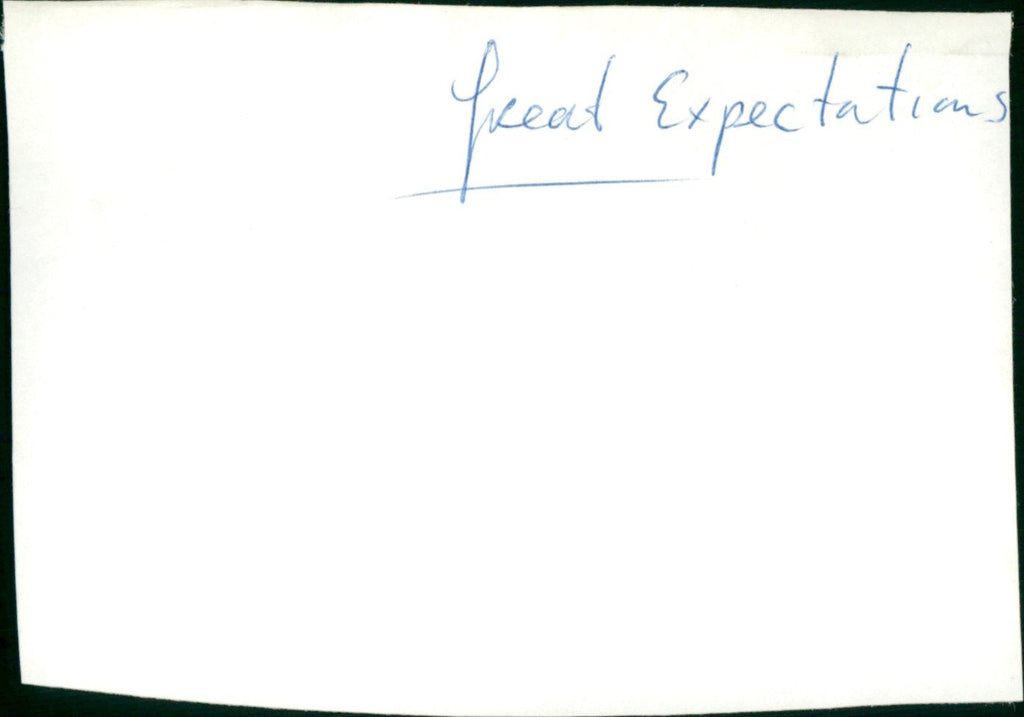 Great Expectations